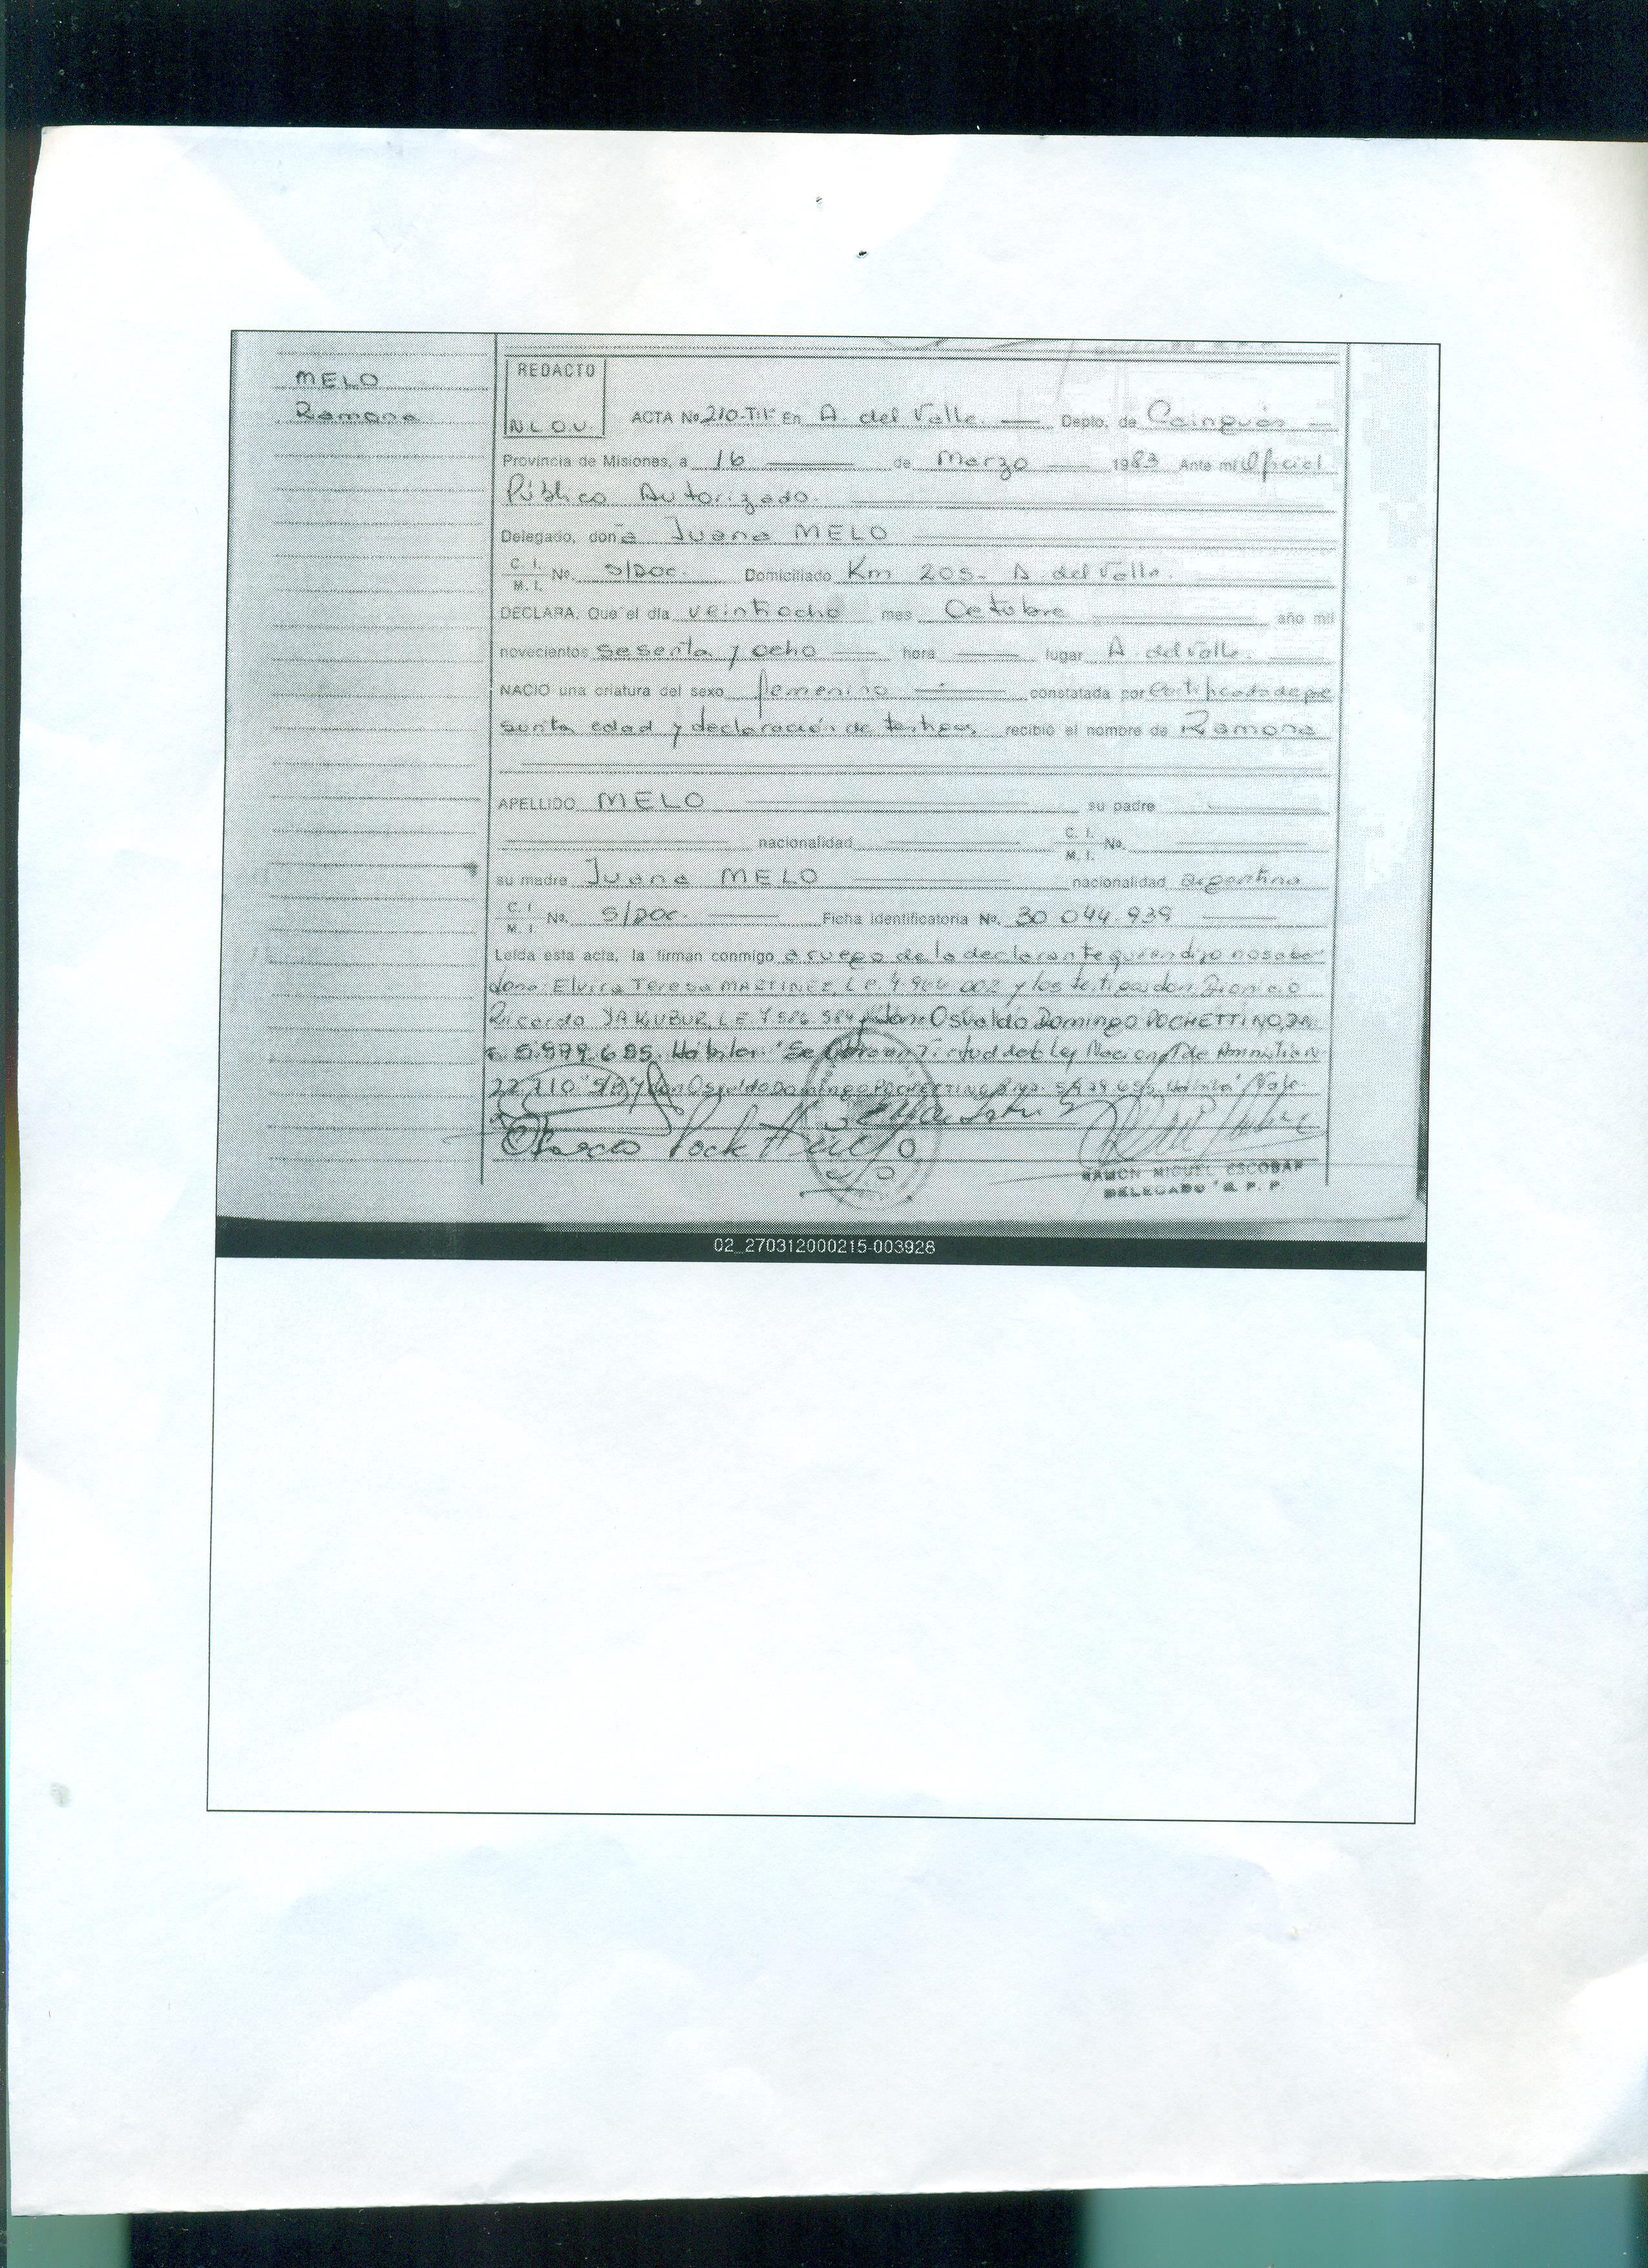 MELO
Ramona
REDACTO
N.L.O.U.
ACTA No 210-T:1º En A. del Valle. Depto. de Cainguás
Provincia de Misiones, a 16 de Marzo 1983 Ante mi Oficial
Público Autorizado.
Delegado, doña Juana MELO
C. I. M. I. No. S/Doc. Domiciliado Km 205- A. del Valle.
DECLARA: Que el día veintiocho mes Octubre año mil
novecientos sesenta y ocho hora lugar A. del Valle.
NACIO una criatura del sexo femenino constatada por Certificado de pre
sunta edad y declaración de testigos, recibió el nombre de Ramona
APELLIDO MELO su padre
nacionalidad C. I. M. I. No.
su madre Juana MELO nacionalidad argentina
C. I. M. I. No. S/Doc. Ficha identificatoria No. 30 044.939
Leída esta acta, la firman conmigo a ruego de la declarante quien dijo no saber
doña Elvira Teresa MARTINEZ, L.C. 4.966 002 y los testigos don Dionicio
Ricardo YAKUBUR, L.E. 7.586.584 y don Osvaldo Domingo POCHETTINO,
5.979.695. Hábiles. Se labra en virtud de la Ley Nacional de Amnistía N
22.710 "S/B" y don Osvaldo Domingo POCHETTINO 5.979.695. Hábiles" Vale.
RAMON MIGUEL ESCOBAR
DELEGADO R. P. P.
02_270312000215-003928